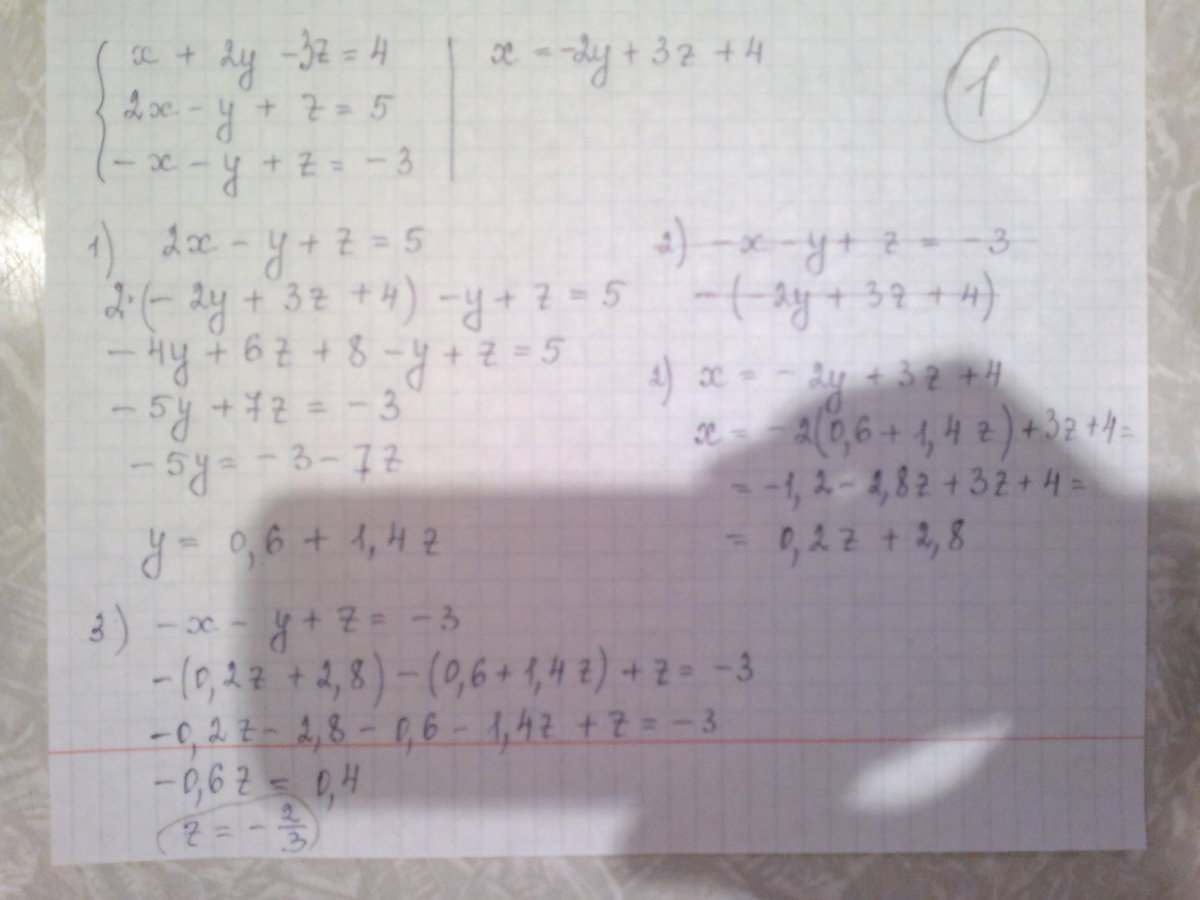 x + 2y - 3z = 4 | x = -2y + 3z + 4
2x - y + z = 5
-x - y + z = -3
1
1) 2x - y + z = 5
2·(-2y + 3z + 4) - y + z = 5
-4y + 6z + 8 - y + z = 5
-5y + 7z = -3
-5y = -3 - 7z
y = 0,6 + 1,4z
2) -x - y + z = -3
-(-2y + 3z + 4)
2) x = -2y + 3z + 4
x = -2(0,6 + 1,4z) + 3z + 4 =
= -1,2 - 2,8z + 3z + 4 =
= 0,2z + 2,8
3) -x - y + z = -3
-(0,2z + 2,8) - (0,6 + 1,4z) + z = -3
-0,2z - 2,8 - 0,6 - 1,4z + z = -3
-0,6z = 0,4
z = -2/3